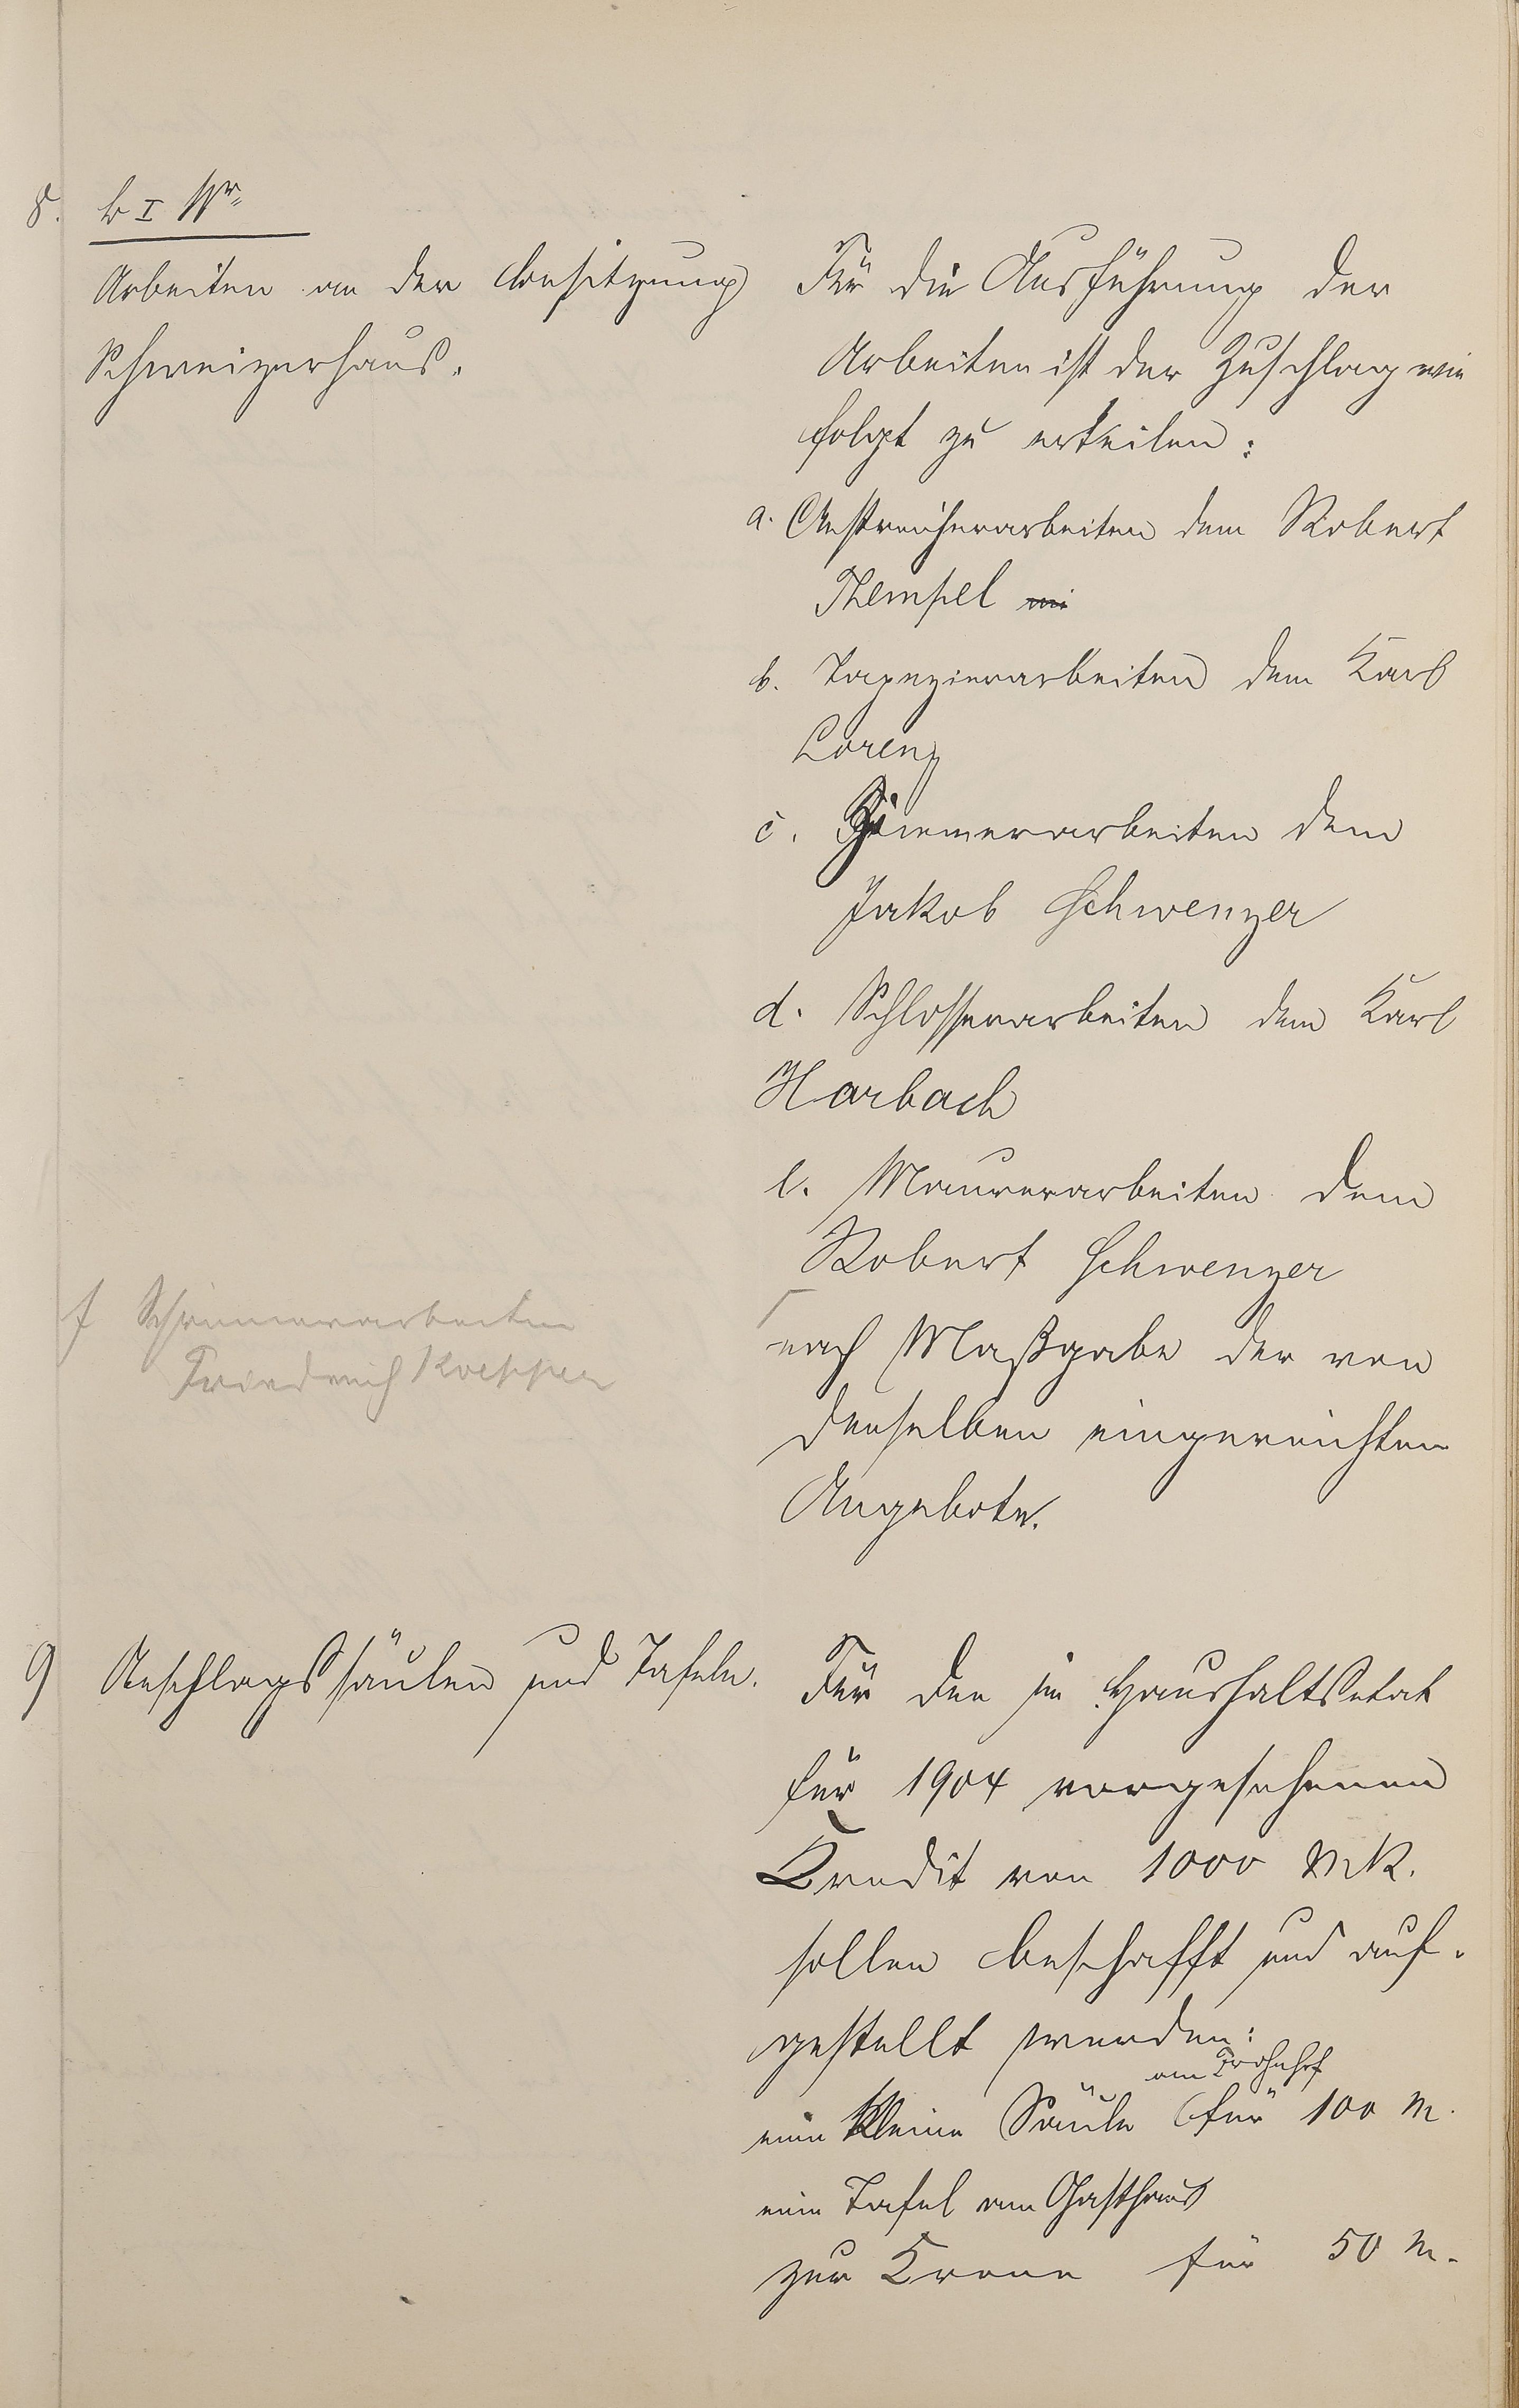 8.
b I Nr.
Arbeiten an der Besitzung
Schweizerhaus.
Für die Ausführung der
Arbeiten ist der Zuschlag wie
folgt zu erteilen:
a. Anstreicherarbeiten dem Robert
Tempel
b. Tapezierarbeiten dem Karl
Lorenz
c. Zimmerarbeiten dem
Jakob Schwenzer
d. Schlosserarbeiten dem Karl
Harbach
e. Maurerarbeiten dem
Robert Schwenzer
f Schreinerarbeiten
Friedrich Kaepper
nach Maßgabe der von
denselben eingereichten
Angebote.
9 Anschlagssäulen und Tafeln.
Für den im Haushaltsetat
für 1904 vorgesehenen
Kredit von 1000 Mk.
sollen beschafft und auf-
gestellt werden:
am Frohnhof
eine kleine Säule für 100 M.
eine Tafel am Gasthaus
zur Krone für 50 M.